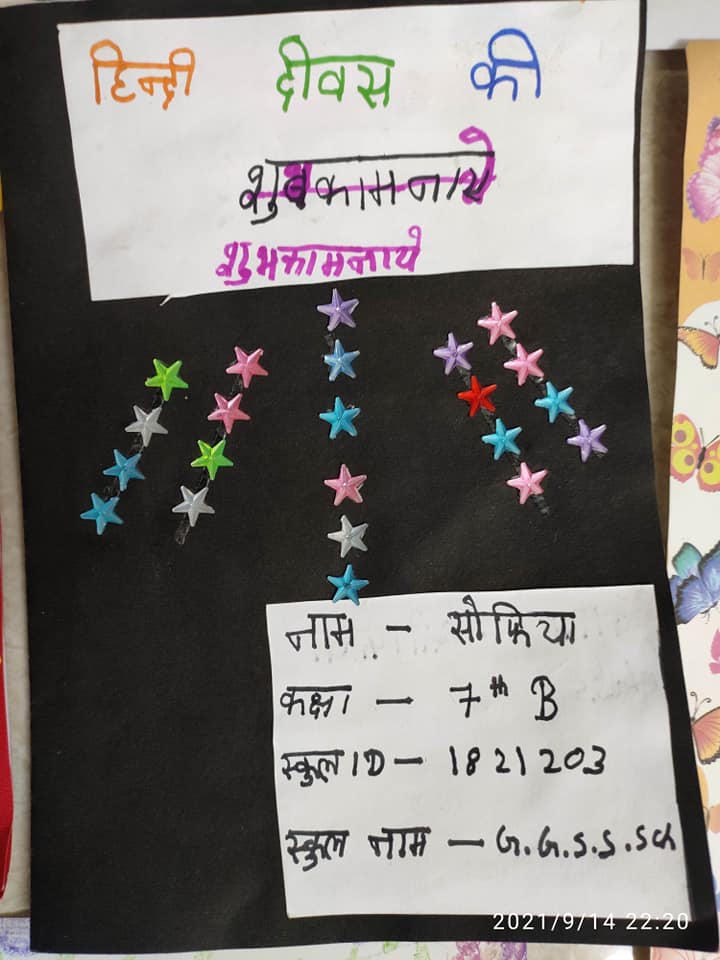 हिन्दी दीवस की
शुबकामनाये
शुभकामनाये
नाम - सोफिया
कक्षा - 7th B
स्कुल ID - 1821203
स्कुल नाम - G.G.S.S.Sch
2021/9/14 22:20